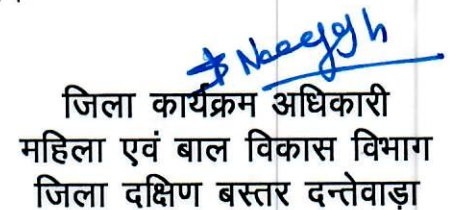 जिला कार्यक्रम अधिकारी
महिला एवं बाल विकास विभाग
जिला दक्षिण बस्तर दन्तेवाड़ा